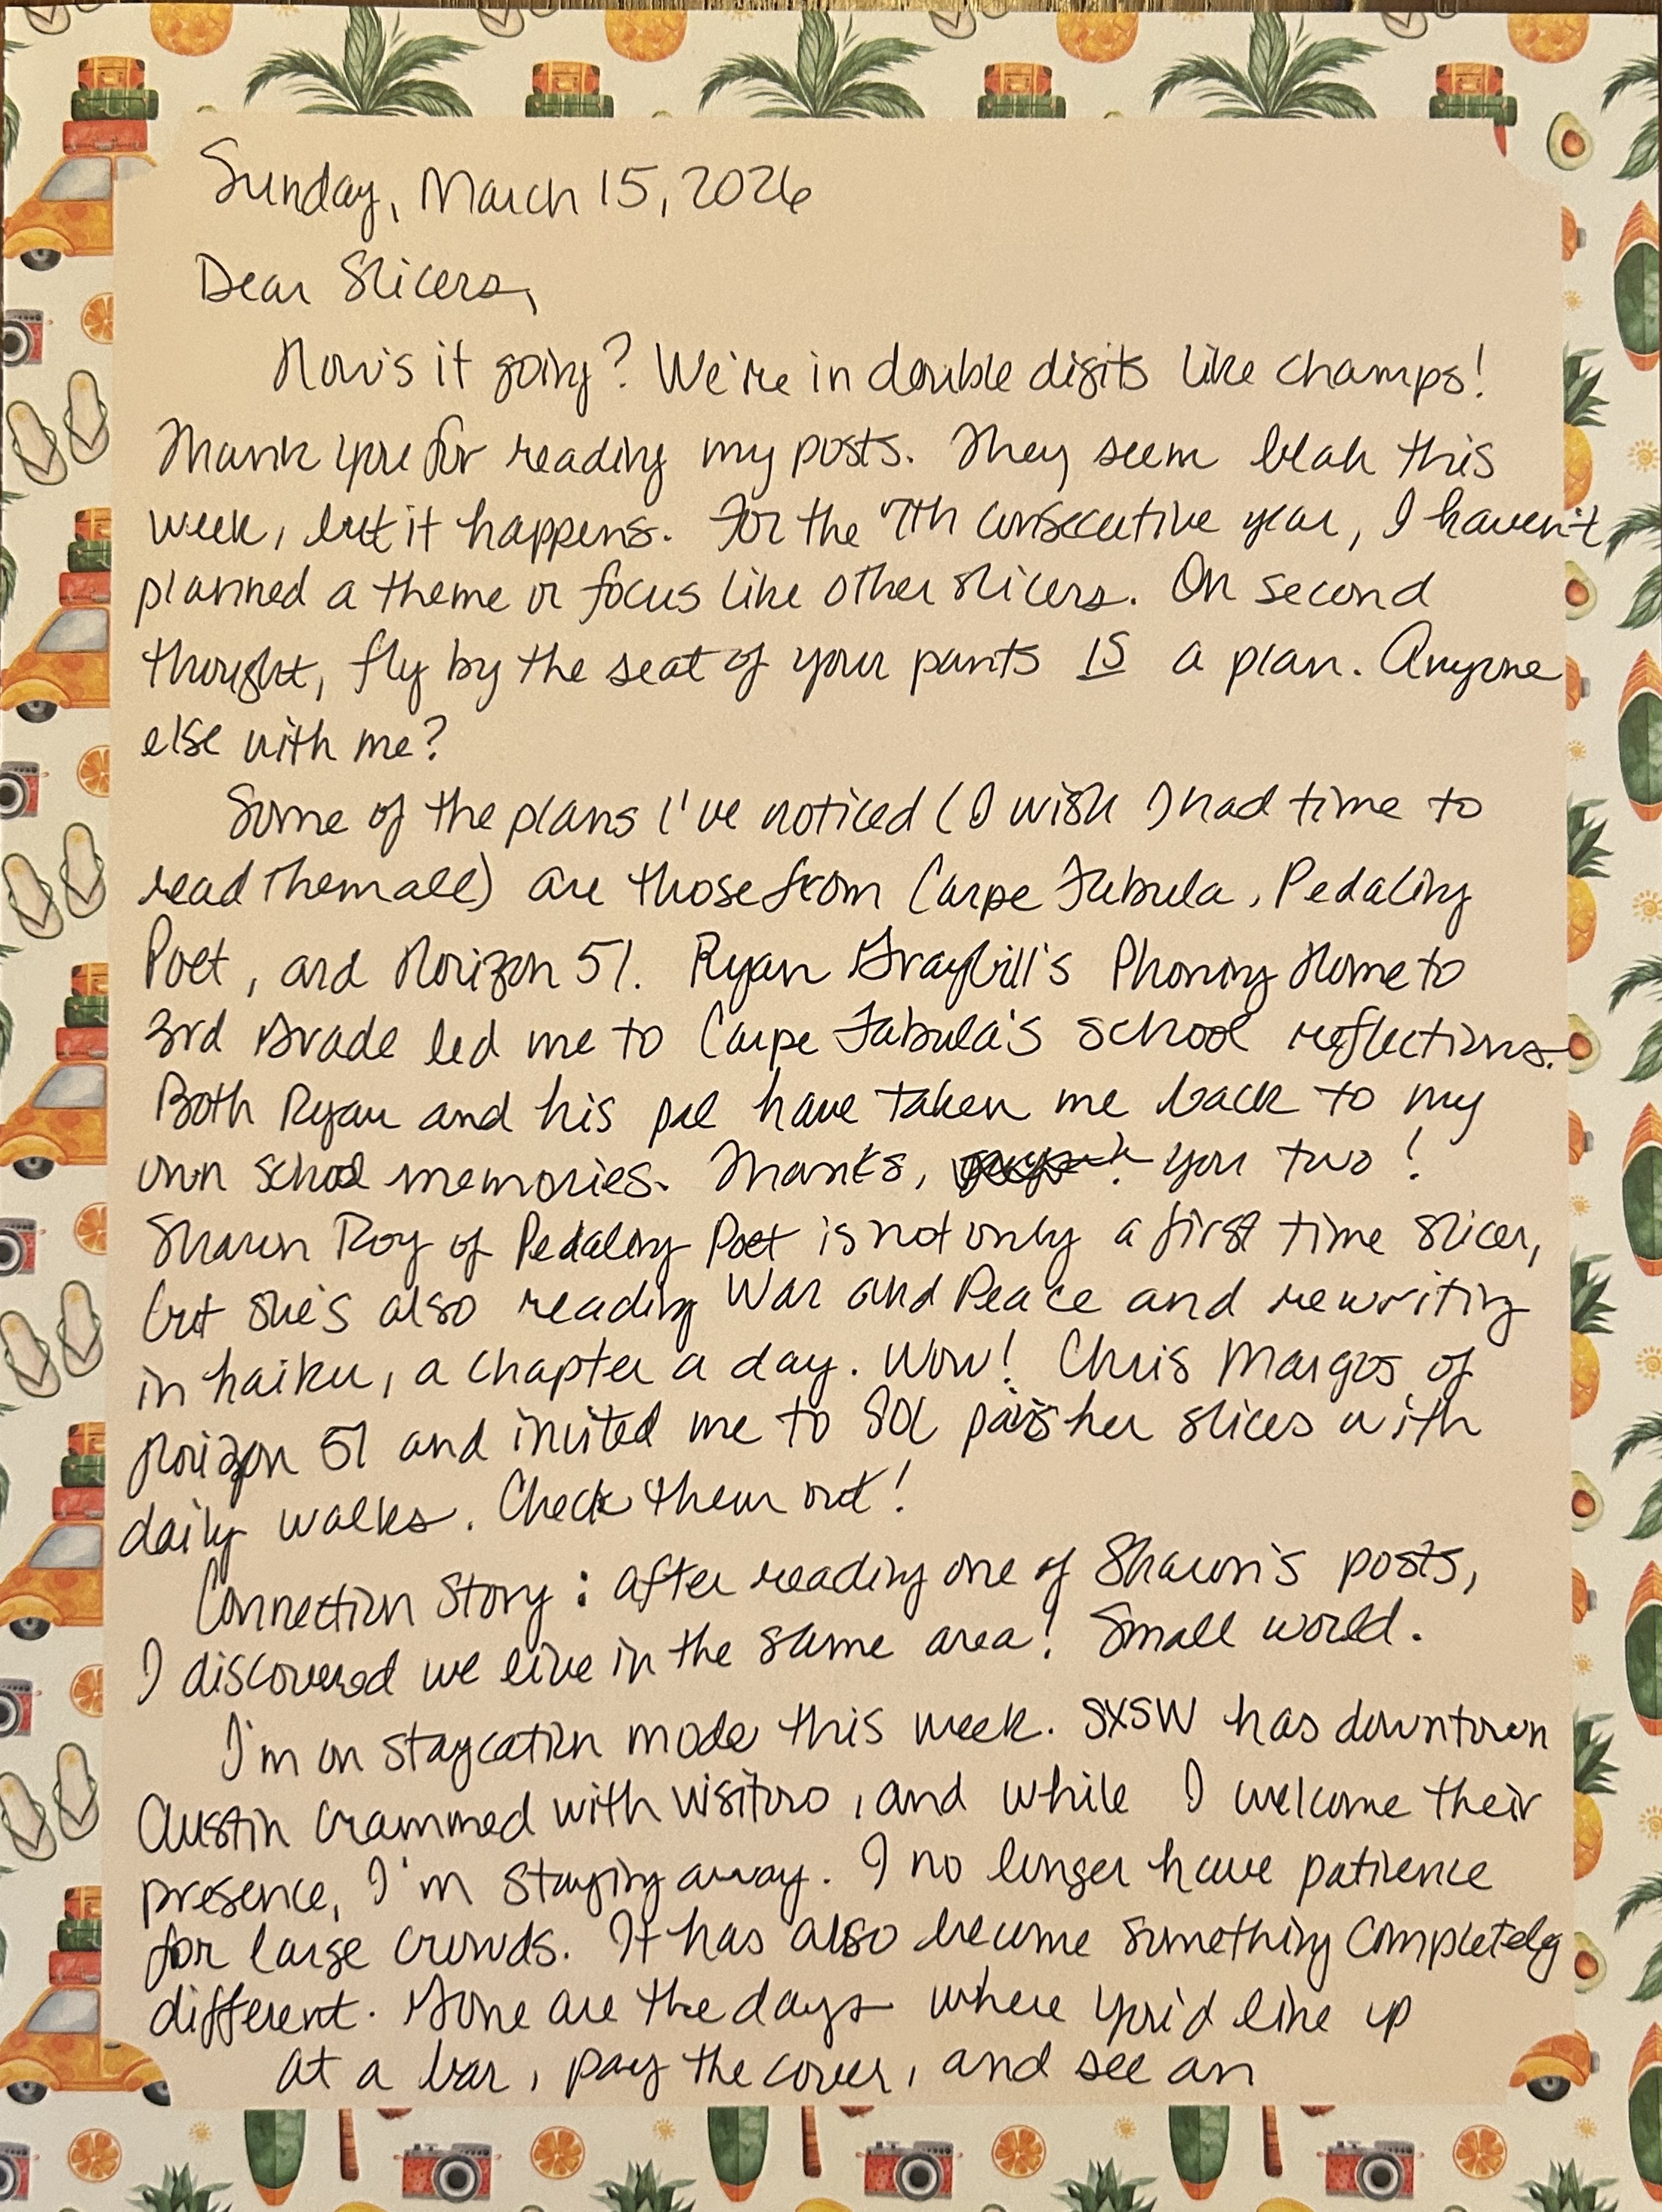 Sunday, March 15, 2026
Dear Slicers,
How's it going? We're in double digits like champs!
Thank you for reading my posts. They seem blah this
week, but it happens. For the 7th consecutive year, I haven't
planned a theme or focus like other slicers. On second
thought, fly by the seat of your pants IS a plan. Anyone
else with me?
Some of the plans I've noticed (I wish I had time to
read them all) are those from Carpe Fabula, Pedaling
Poet, and Horizon 51. Ryan Graybill's Phoning Home to
3rd Grade led me to Carpe Fabula's school reflections.
Both Ryan and his pal have taken me back to my
own school memories. Thanks, you two!
Sharon Roy of Pedaling Poet is not only a first time slicer,
but she's also reading War and Peace and rewriting
in haiku, a chapter a day. Wow! Chris Margos of
Horizon 51 and invited me to SOL pairs her slices with
daily walks. Check them out!
Connection Story: after reading one of Sharon's posts,
I discovered we live in the same area! Small world.
I'm on staycation mode this week. SXSW has downtown
Austin crammed with visitors, and while I welcome their
presence, I'm staying away. I no longer have patience
for large crowds. It has also become something completely
different. Gone are the days where you'd line up
at a bar, pay the cover, and see an